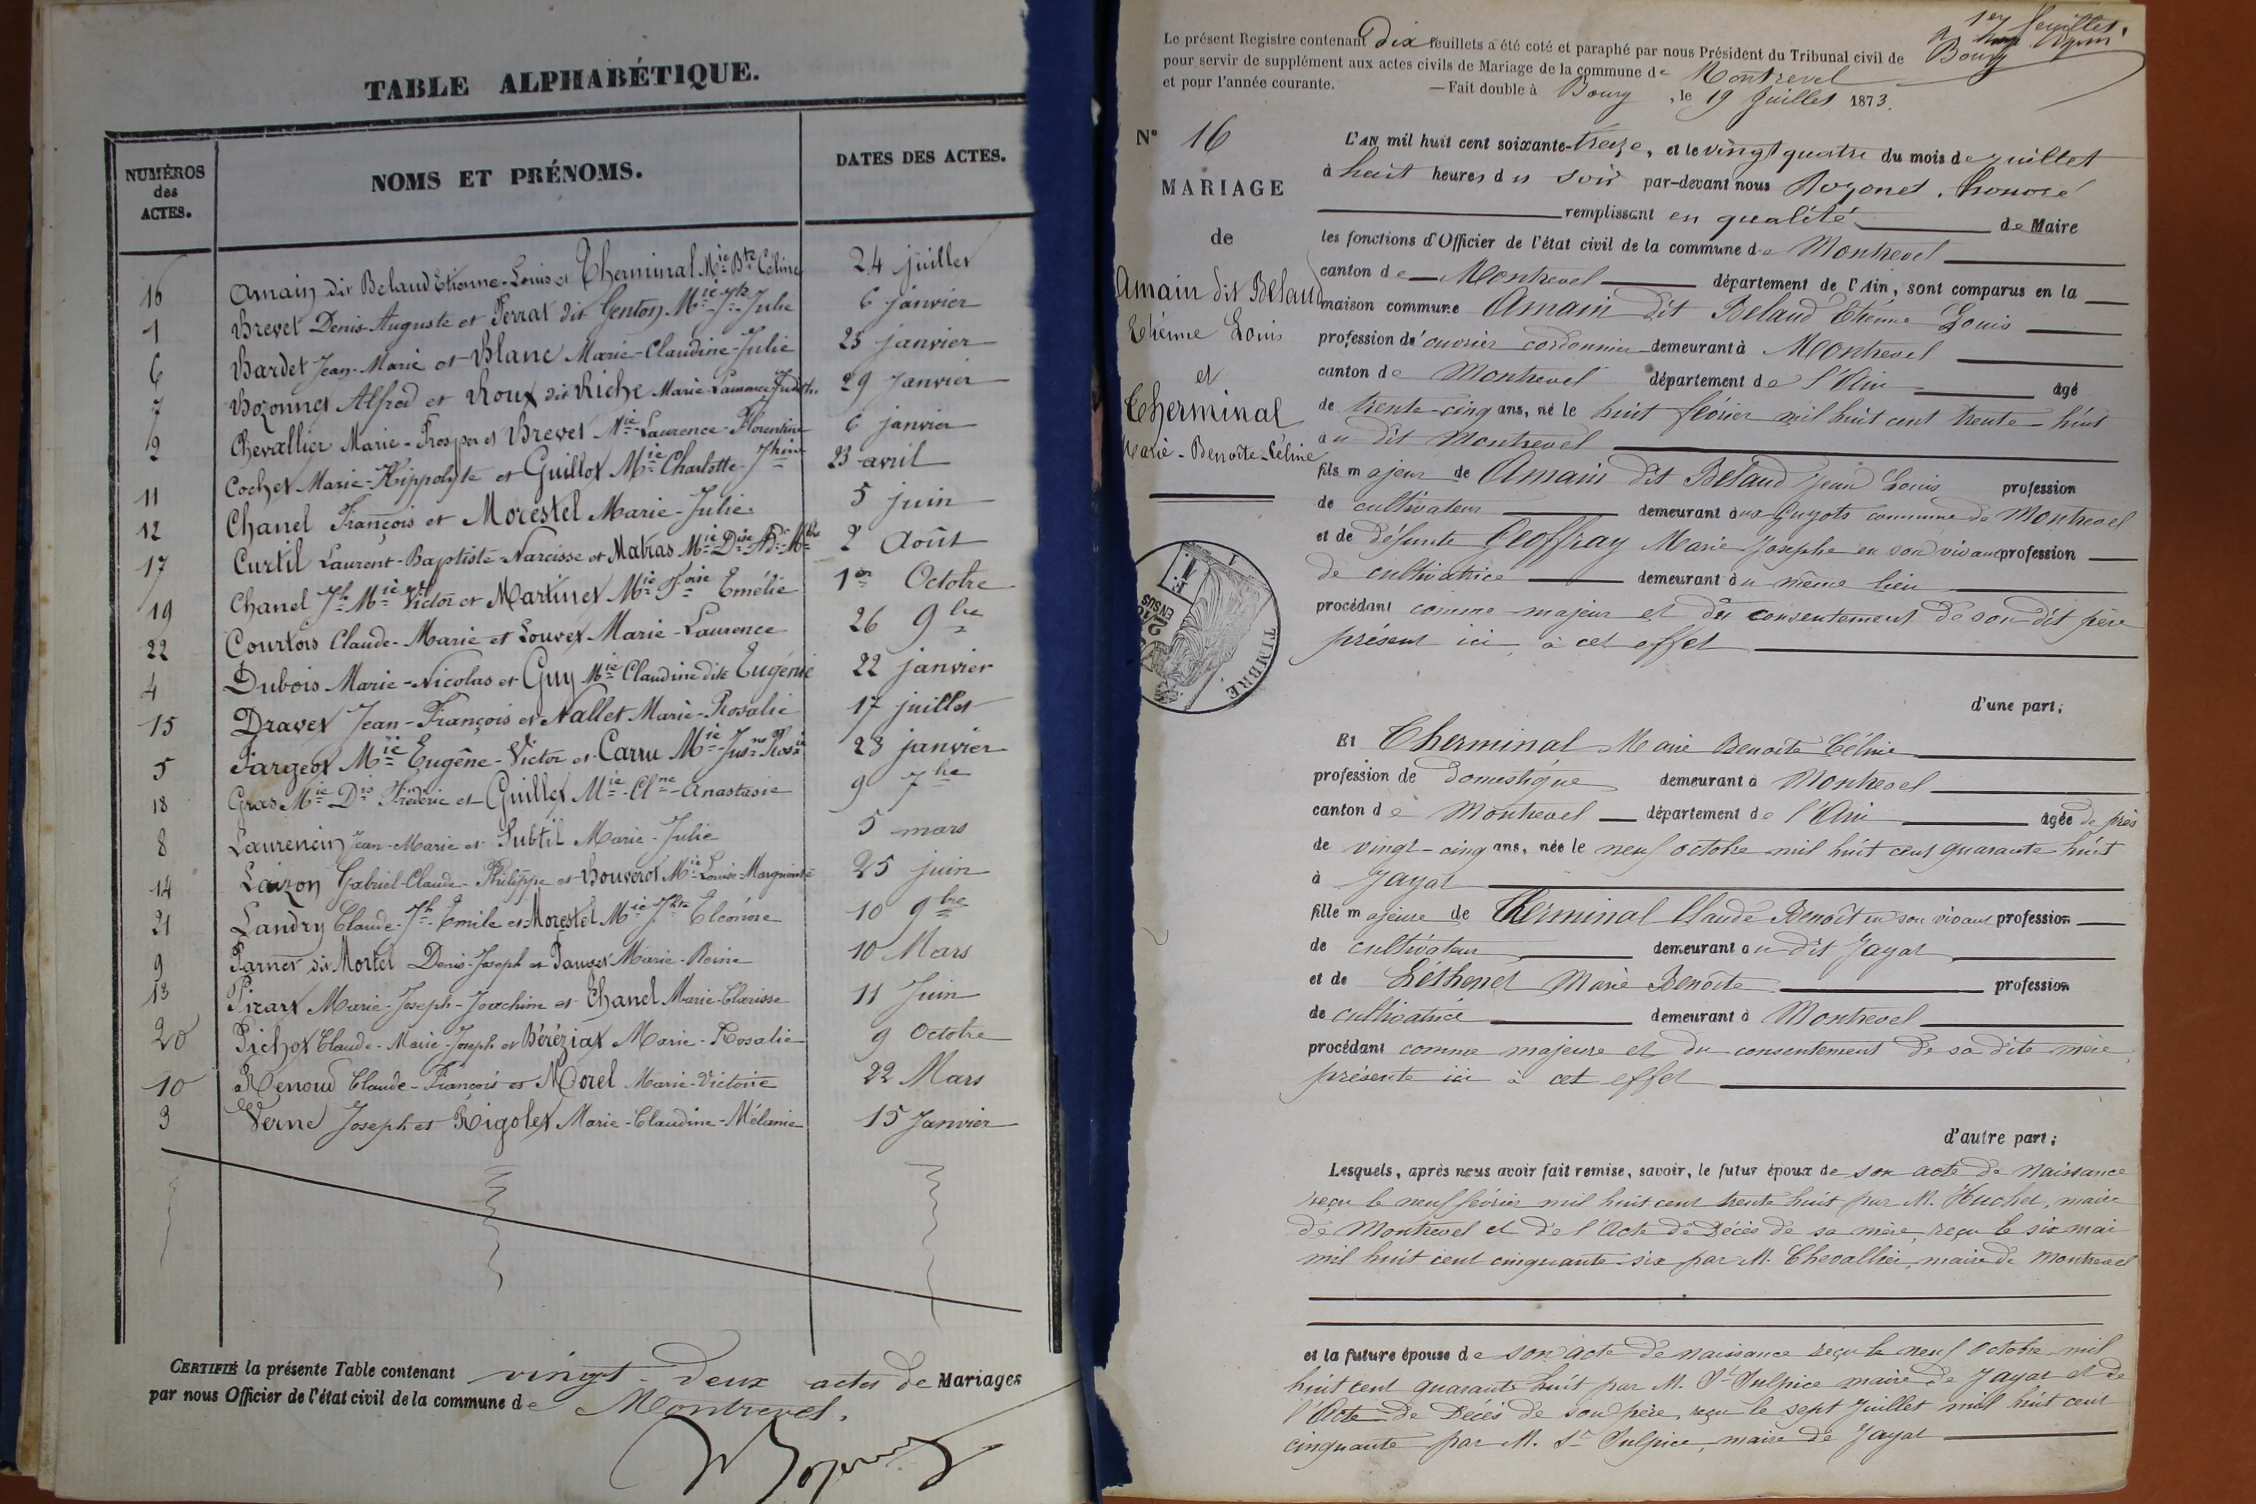 TABLE ALPHABÉTIQUE.
NUMÉROS des ACTES.
NOMS ET PRÉNOMS.
DATES DES ACTES.
16 Amain dit Belaud Etienne-Louis et Therminal Mie Bte Céline 24 juillet
1 Brevet Denis Auguste et Ferrat dit Genton Mie Jh Julie 6 janvier
6 Bardet Jean-Marie et Blanc Marie-Claudine-Julie 25 janvier
7 Bozonnet Alfred et Roux dit Riche Marie Laurence Judith. 29 Janvier
2 Chevallier Marie-Prosper et Brevet Mie Laurence-Florentine 6 janvier
11 Cochet Marie-Hippolyte et Guillot Mie Charlotte-Jhine 23 avril
12 Chanel François et Morestel Marie-Julie. 5 juin
17 Curtil Laurent-Baptiste-Narcisse et Matras Mie 2 Août
19 Chanel Jh Mie Victor et Martinet Mie Emélie 1er Octobre
22 Courtois Claude-Marie et Louvet Marie-Laurence 26 9bre
4 Dubois Marie-Nicolas et Guy Mie Claudine dite Eugénie 22 janvier
15 Dravet Jean-François et Nallet Marie-Rosalie 17 juillet
5 Fargeot Mie Eugêne-Victor et Carru Mie 23 janvier
18 Gras Mie Dis Frédéric et Guillet Mie-Clne-Anastasie 9 7bre
8 Laurencin Jean-Marie et Subtil Marie-Julie 5 mars
14 Laizon Gabriel-Claude-Philippe et Bouverot Mie Louise-Marguerite 25 juin
21 Landry Claude-Jh-Emile et Morestel Mie Jhte Eléonore 10 9bre
9 Parner dit Mortel Denis-Joseph et Pauget Marie-Reine 10 Mars
13 Pirart Marie-Joseph-Joachim et Chanel Marie-Clarisse 11 Juin
20 Pichot Claude-Marie-Joseph et Béréziat Marie-Rosalie 9 Octobre
10 Renoud Claude-François et Morel Marie-Victoire 22 Mars
3 Verne Joseph et Rigolet Marie-Claudine-Mélanie 15 Janvier
CERTIFIÉ la présente Table contenant vingt-deux actes de Mariages
par nous Officier de l'état civil de la commune de Montrevel.
1er feuillet.
Le présent Registre contenant dix feuillets a été coté et paraphé par nous Président du Tribunal civil de Bourg
pour servir de supplément aux actes civils de Mariage de la commune de Montrevel
et pour l'année courante. — Fait double à Bourg, le 19 Juillet 1873.
N° 16
MARIAGE
de
Amain dit Belaud
Etienne Louis
et
Therminal
Marie-Benoîte-Céline
TIMBRE
L'AN mil huit cent soixante-treize, et le vingt quatre du mois de juillet
à huit heures du soir par-devant nous Bozonet, honoré
remplissant en qualité de Maire
les fonctions d'Officier de l'état civil de la commune de Montrevel
canton de Montrevel département de l'Ain, sont comparus en la
maison commune Amain dit Belaud Etienne Louis
profession d'ouvrier cordonnier demeurant à Montrevel
canton de Montrevel département de l'Ain âgé
de trente-cinq ans, né le huit février mil huit cent trente-huit
au dit Montrevel
fils majeur de Amain dit Belaud Jean Louis profession
de cultivateur demeurant aux Guyots commune de Montrevel
et de défunte Geoffray Marie Josephe en son vivant profession
de cultivatrice demeurant au même lieu
procédant comme majeur et du consentement de son dit père
présent ici à cet effet
d'une part;
Et Therminal Marie Benoîte Céline
profession de domestique demeurant à Montrevel
canton de Montrevel département de l'Ain âgée de près
de vingt-cinq ans, née le neuf octobre mil huit cent quarante huit
à Jayat
fille majeure de Therminal Claude Benoît en son vivant profession
de cultivateur demeurant au dit Jayat
et de Léthenet Marie Benoîte profession
de cultivatrice demeurant à Montrevel
procédant comme majeure et du consentement de sa dite mère,
présente ici à cet effet
d'autre part;
Lesquels, après nous avoir fait remise, savoir, le futur époux de son acte de Naissance
reçu le neuf février mil huit cent trente huit par M. Huchet, maire
de Montrevel et de l'Acte de Décès de sa mère, reçu le six mai
mil huit cent cinquante-six par M. Chevallier, maire de Montrevel
et la future épouse de son acte de naissance reçu le neuf Octobre mil
huit cent quarante huit par M. St Sulpice maire de Jayat et de
l'Acte de Décès de son père, reçu le sept Juillet mil huit cent
cinquante par M. St Sulpice, maire de Jayat